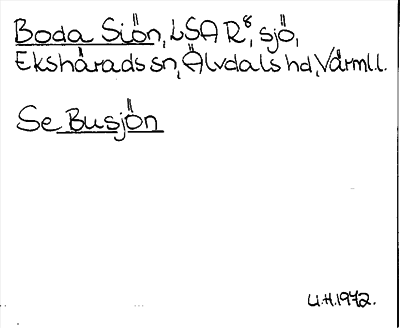 Boda Siön, LSA R⁸, sjö,
Ekshärads sn, Älvdals hd, Värml.l.
Se Busjön
U.H. 1972.